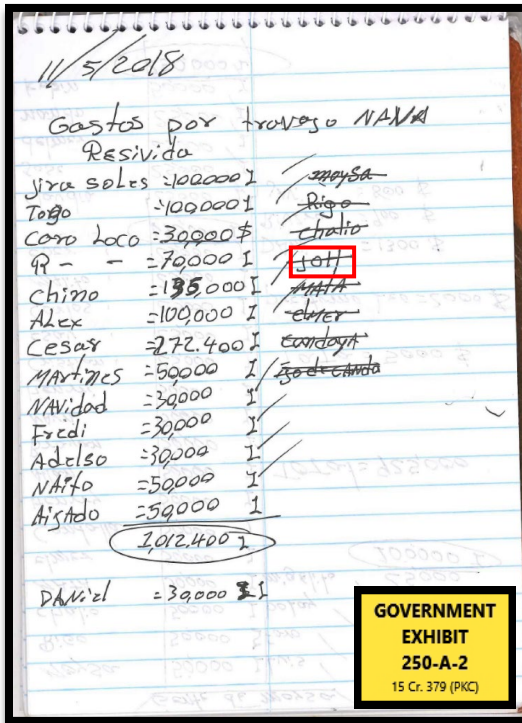 11/5/2018
Gastos por travajo NANA
Resivida
jira soles =100000 I moysa
Togo =100,000 I Rigo
Caro Loco =30,000 $ chalio
R - - =70,000 I joH
chino =195,000 I MATA
ALEX =100,000 I elmer
Cesar =272.400 I
MArtines =50,000 I
NAvidad =30,000 I
Fredi =30,000 I
Adelso =30,000 I
NAito =50,000 I
=50,000 I
1,012,400 I
DANiel =30,000 I
GOVERNMENT
EXHIBIT
250-A-2
15 Cr. 379 (PKC)